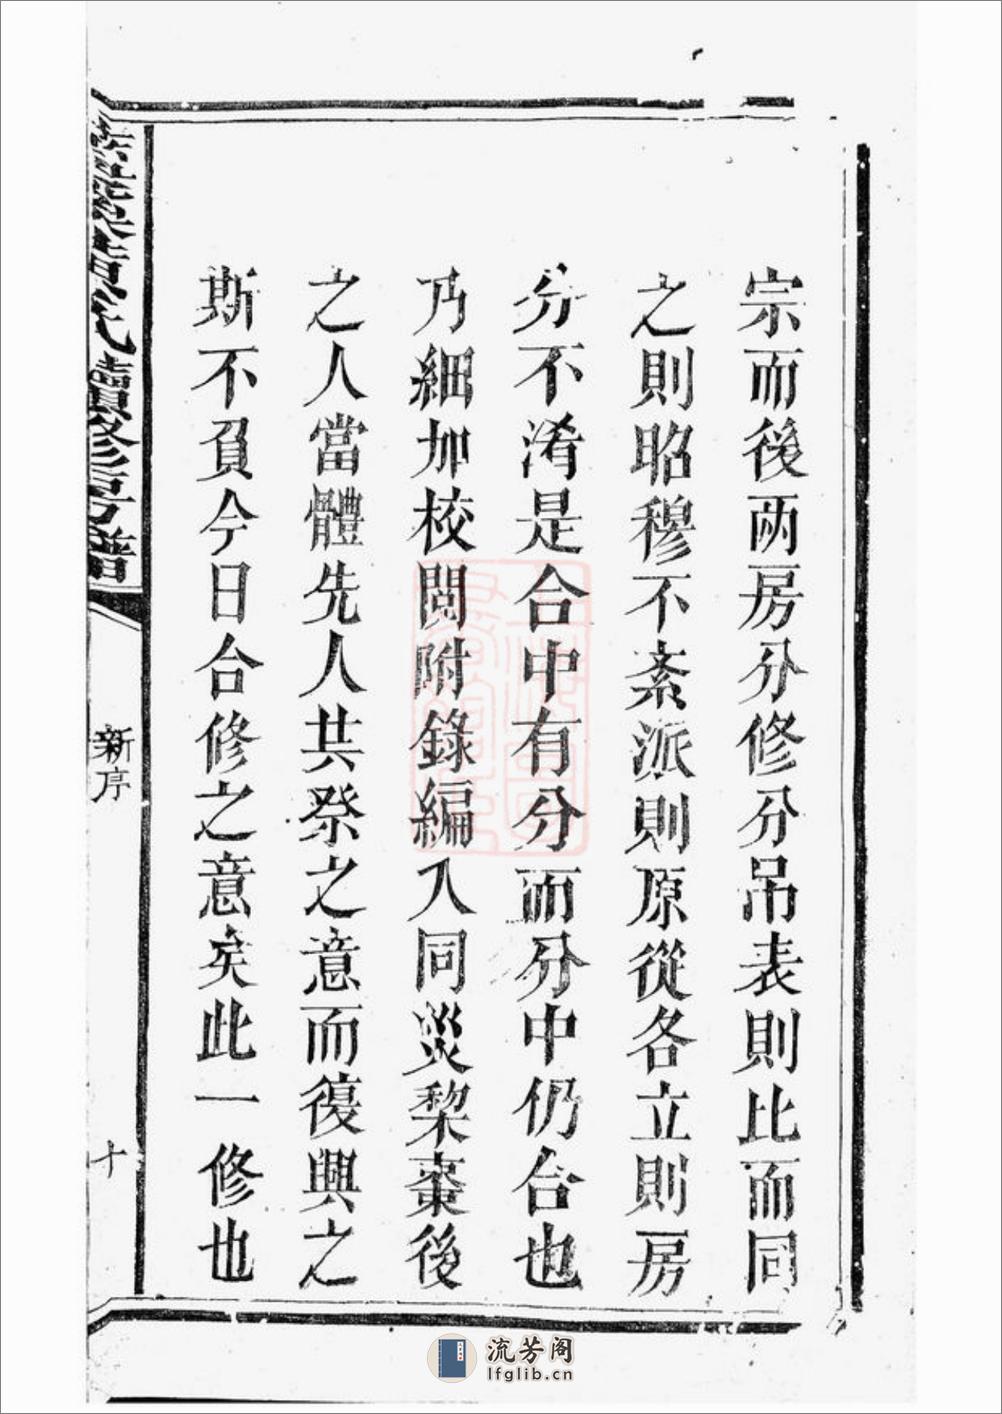 宗而後兩房分修分吊表則比而同
之則昭穆不紊派則原從各立則房
分不淆是合中有分而分中仍合也
乃細加校閱附錄編入同災棃棗後
之人當體先人共祭之意而復興之
斯不負今日合修之意矣此一修也
氏續修房譜
新序
十
流芳阁
lfglib.cn